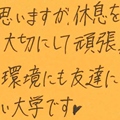 思いますが、休息を
大切にして頑張
環境にも友達に
い大学です♥